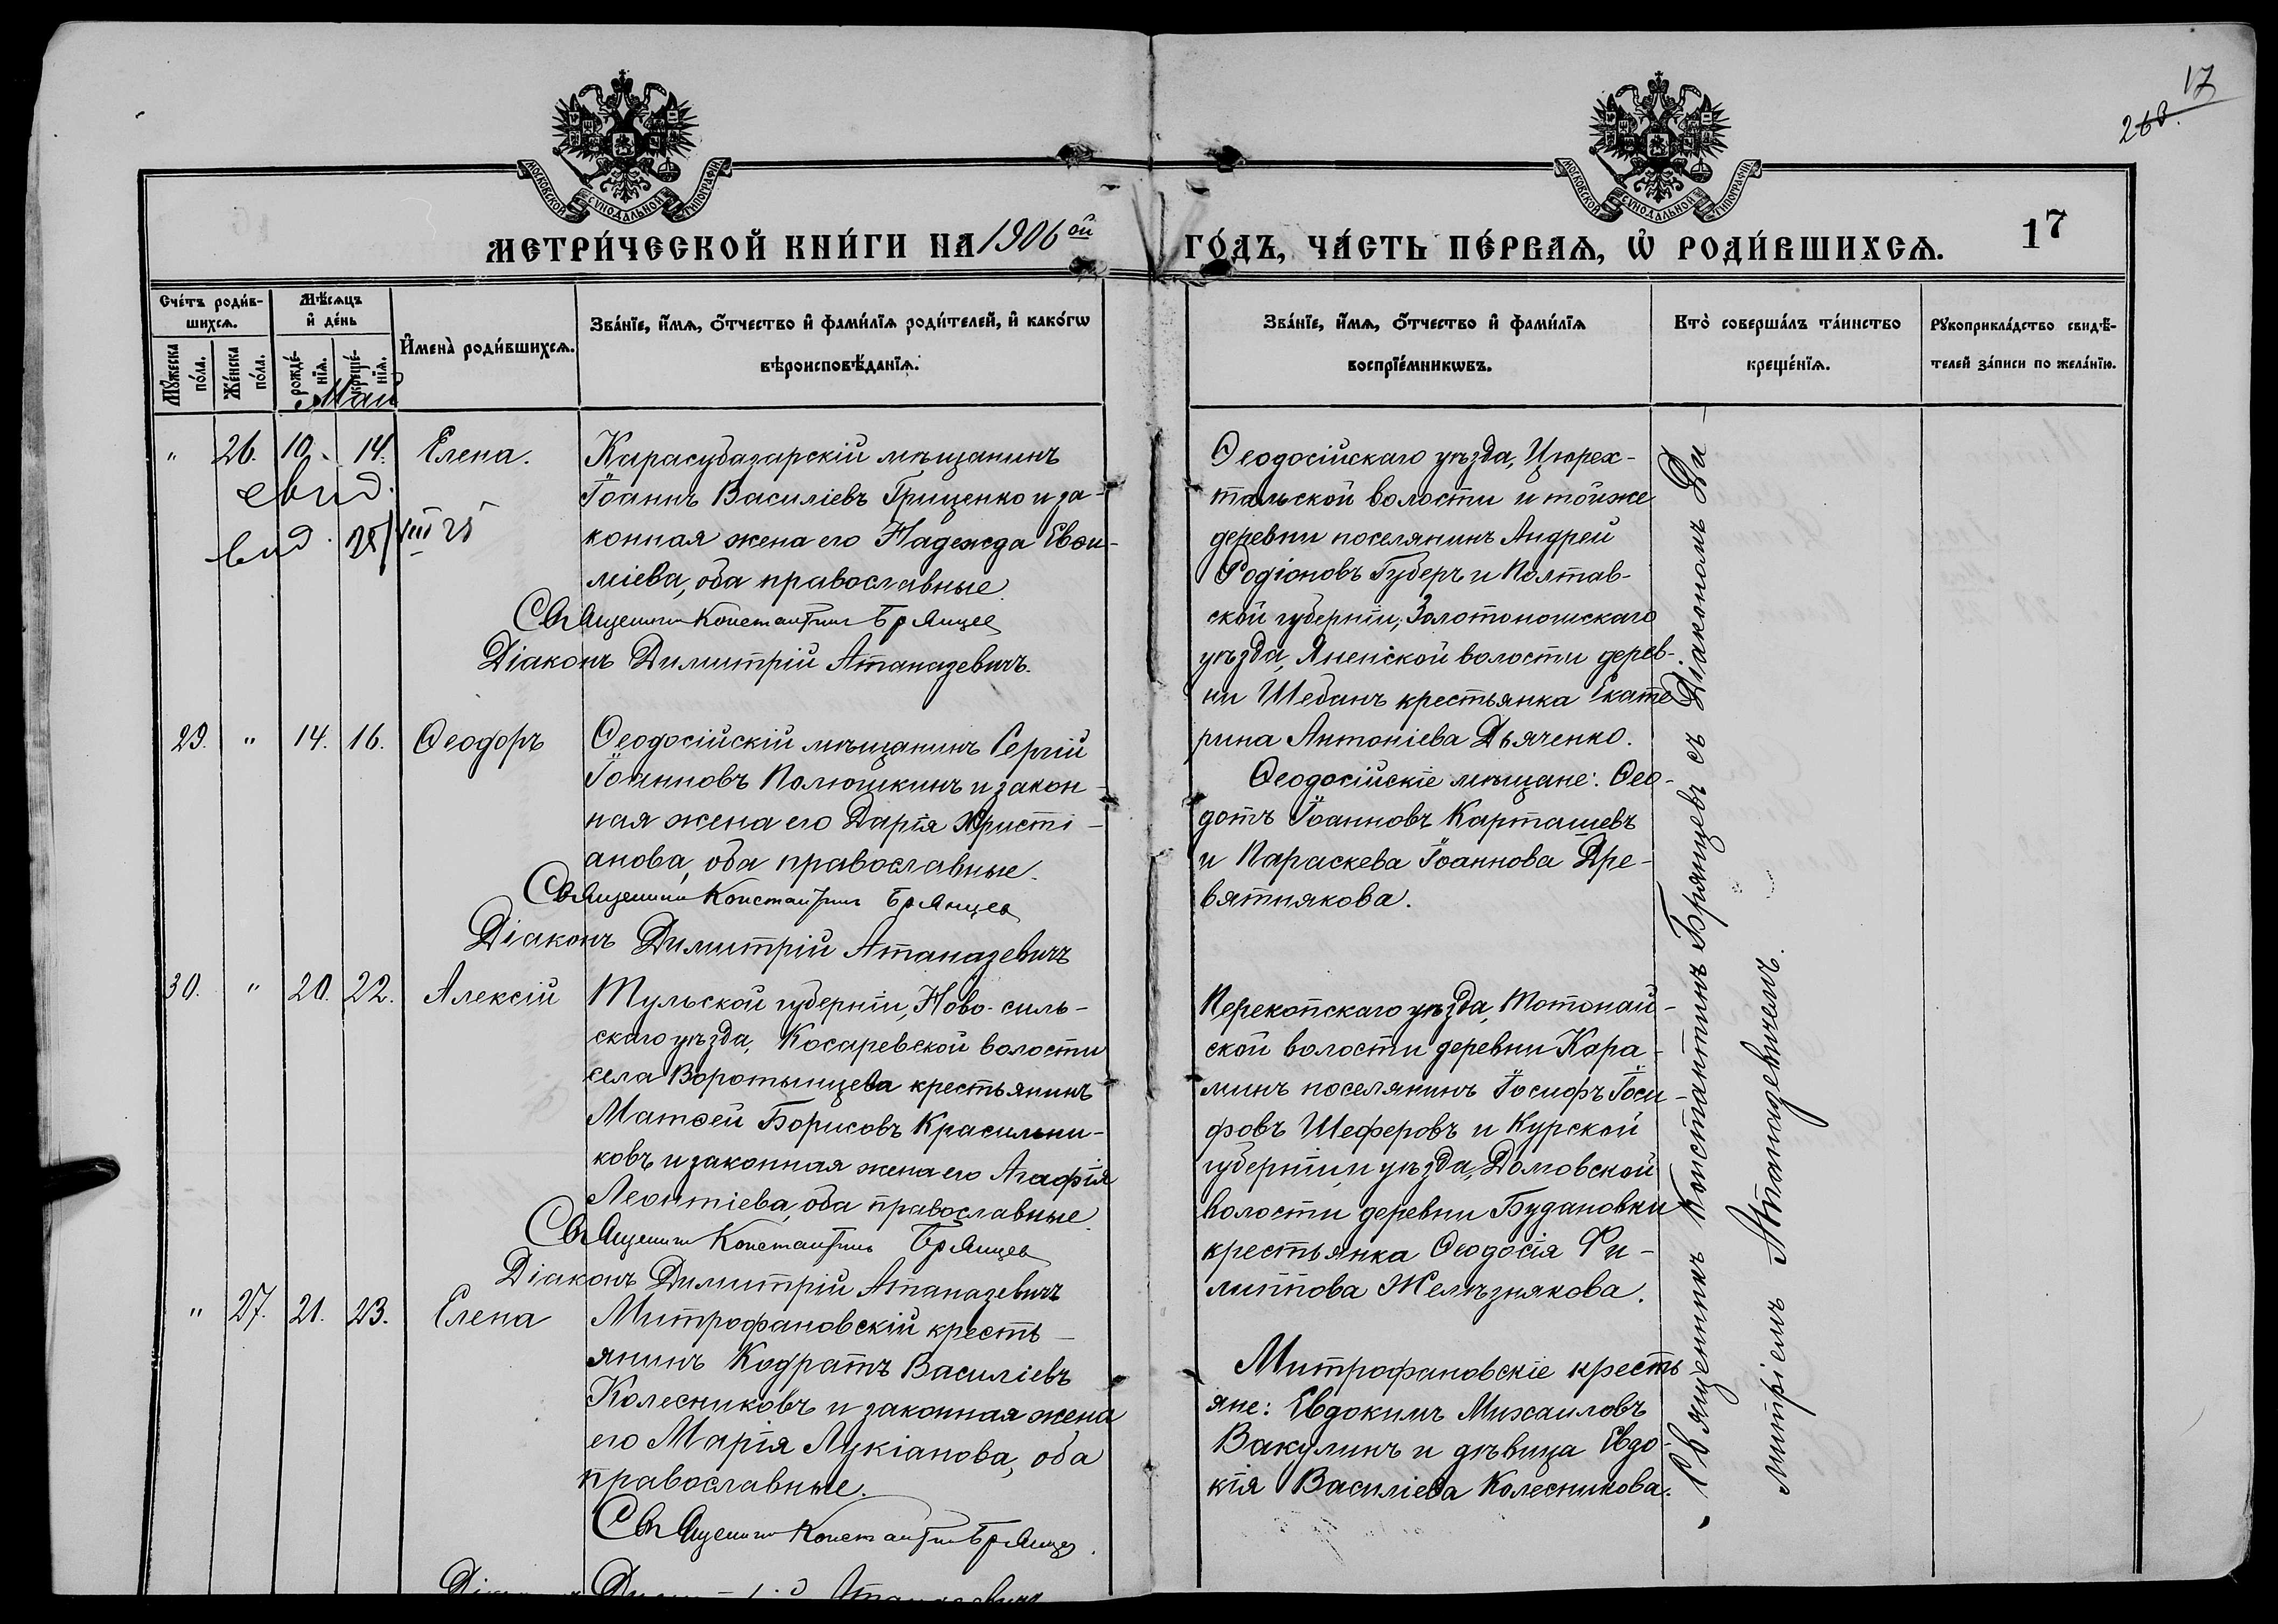 17
268.
МОСКОВСКОЙ СѴНОДАЛЬНОЙ ТИПОГРАФІИ
МОСКОВСКОЙ СѴНОДАЛЬНОЙ ТИПОГРАФІИ
МЕТРИ́ЧЕСКОЙ КНИ́ГИ НА 1906ой ГО́ДЪ, ЧА́СТЬ ПЕ́РВАѦ, Ѡ҆ РОДИ́ВШИХСѦ. 17
Сче́тъ роди́в-
шихсѧ.
Мѣ́сѧцъ
и҆ де́нь
Мꙋ́жеска
по́ла.
Же́нска
по́ла.
рожде́-
нїѧ.
креще́-
нїѧ.
И҆мена̀ роди́вшихсѧ.
Зва́нїе, и҆́мѧ, ѻ҆́тчество и҆ фамѝлїѧ роди́телей, и҆ како́гѡ
вѣроисповѣ́данїѧ.
Зва́нїе, и҆́мѧ, ѻ҆́тчество и҆ фами́лїѧ
воспрїе́мникѡвъ.
Кто̀ соверша́лъ та́инство
креще́нїѧ.
Рꙋкоприкла́дство свидѣ́-
телей за́писи по жела́нїю.
Май
" 26. 10. 14. Елена.
свид.
вид. 28/VIII 25
Карасубазарскій мѣщанинъ
Іоаннъ Василіевъ Гриценко и за-
конная жена его Надежда Евѳи-
міева, оба православные.
Священникъ Константинъ Брянцев
Діаконъ Димитрій Атаназевичъ.
Ѳеодосійскаго уѣзда, Цюрех-
тальской волости и тойже
деревни поселянинъ Андрей
Родіоновъ Губеръ и Полтав-
ской губерніи, Золотоношскаго
уѣзда, Яненской волости дерев-
ни Шебанъ крестьянка Екате
рина Антоніева Дьяченко.
29. " 14. 16. Ѳеодоръ
Ѳеодосійскій мѣщанинъ Сергій
Іоанновъ Полюшкинъ и закон-
ная жена его Дарія Христі-
анова, оба православные.
Священникъ Константинъ Брянцев
Діаконъ Димитрій Атаназевичъ
Ѳеодосійскіе мѣщане: Ѳео-
дотъ Іоанновъ Карташевъ
и Параскева Іоаннова Дре-
вятнякова.
30. " 20. 22. Алексій
Тульской губерніи, Ново-силь-
скаго уѣзда, Косаревской волости
села Воротынцева крестьянинъ
Матѳей Борисовъ Красильни-
ковъ и законная жена его Агафія
Леонтіева, оба православные.
Священникъ Константинъ Брянцев
Діаконъ Димитрій Атаназевичъ
Перекопскаго уѣзда, Тотонай-
ской волости деревни Кара-
минъ поселянинъ Іосифъ Іоси-
фовъ Шеферовъ и Курской
губерніи и уѣзда, Домовской
волости деревни Будановки
крестьянка Ѳеодосія Фи-
липпова Желѣзнякова.
" 27. 21. 23. Елена
Митрофановскій кресть-
янинъ Кодратъ Василіевъ
Колесниковъ и законная жена
его Марія Лукіанова, оба
православные.
Священникъ Константинъ Брянцев.
Діаконъ Димитрій Атаназевичъ
Митрофановскіе кресть
яне: Евдокимъ Михаиловъ
Вакулинъ и дѣвица Евдо-
кія Василіева Колесникова.
Священникъ Константинъ Брянцевъ съ Діакономъ Ди-
митріемъ Атаназевичемъ.